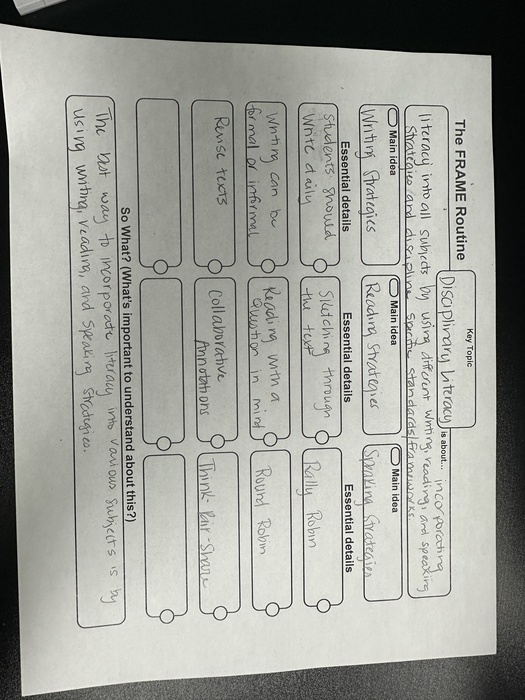 The FRAME Routine
Key Topic
Disciplinary Literacy
is about... incorporating
literacy into all subjects by using different writing, reading, and speaking
strategies and discipline specific standards/frameworks.
Main idea
Main idea
Main idea
Writing Strategies
Reading Strategies
Speaking Strategies
Essential details
Essential details
Essential details
Students should
write daily
Sketching through
the text
Rally Robin
Writing can be
formal or informal
Reading with a
Question in mind
Round Robin
Revise texts
Collaborative
Annotations
Think-Pair-Share
So What? (What's important to understand about this?)
The best way to incorporate literacy into various subjects is by
using writing, reading, and speaking strategies.